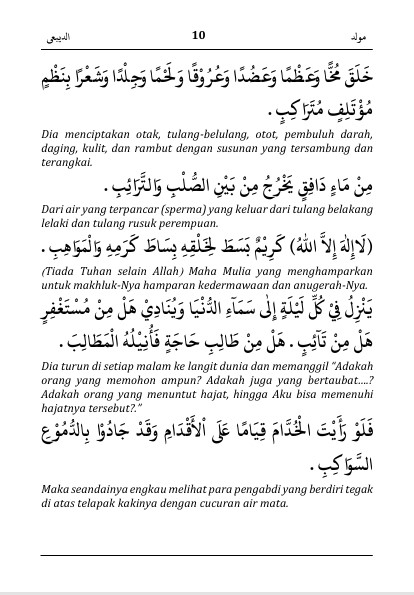 مولد 10 الديبعي
خَلَقَ مُخًّا وَعَظْمًا وَعَضُدًا وَعُرُوْقًا وَلَحْمًا وَجِلْدًا وَشَعْرًا بِنَظْمٍ
مُؤْتَلِفٍ مُتَرَاكِبٍ .
Dia menciptakan otak, tulang-belulang, otot, pembuluh darah,
daging, kulit, dan rambut dengan susunan yang tersambung dan
terangkai.
مِنْ مَاءٍ دَافِقٍ يَخْرُجُ مِنْ بَيْنِ الصُّلْبِ وَالتَّرَائِبِ .
Dari air yang terpancar (sperma) yang keluar dari tulang belakang
lelaki dan tulang rusuk perempuan.
(لَاإِلٰهَ إِلاَّ اللهُ) كَرِيْمٌ بَسَطَ لِخَلْقِهِ بِسَاطَ كَرَمِهِ وَالْمَوَاهِبِ .
(Tiada Tuhan selain Allah) Maha Mulia yang menghamparkan
untuk makhluk-Nya hamparan kedermawaan dan anugerah-Nya.
يَنْزِلُ فِيْ كُلِّ لَيْلَةٍ إِلٰى سَمَآءِ الدُّنْيَا وَيُنَادِيْ هَلْ مِنْ مُسْتَغْفِرٍ
هَلْ مِنْ تَآئِبٍ . هَلْ مِنْ طَالِبِ حَاجَةٍ فَأُنِيْلُهُ الْمَطَالِبَ .
Dia turun di setiap malam ke langit dunia dan memanggil “Adakah
orang yang memohon ampun? Adakah juga yang bertaubat....?
Adakah orang yang menuntut hajat, hingga Aku bisa memenuhi
hajatnya tersebut?.”
فَلَوْ رَأَيْتَ الْخُدَّامَ قِيَامًا عَلَى اْلأَقْدَامِ وَقَدْ جَادُوْا بِالدُّمُوْعِ
السَّوَاكِبِ .
Maka seandainya engkau melihat para pengabdi yang berdiri tegak
di atas telapak kakinya dengan cucuran air mata.